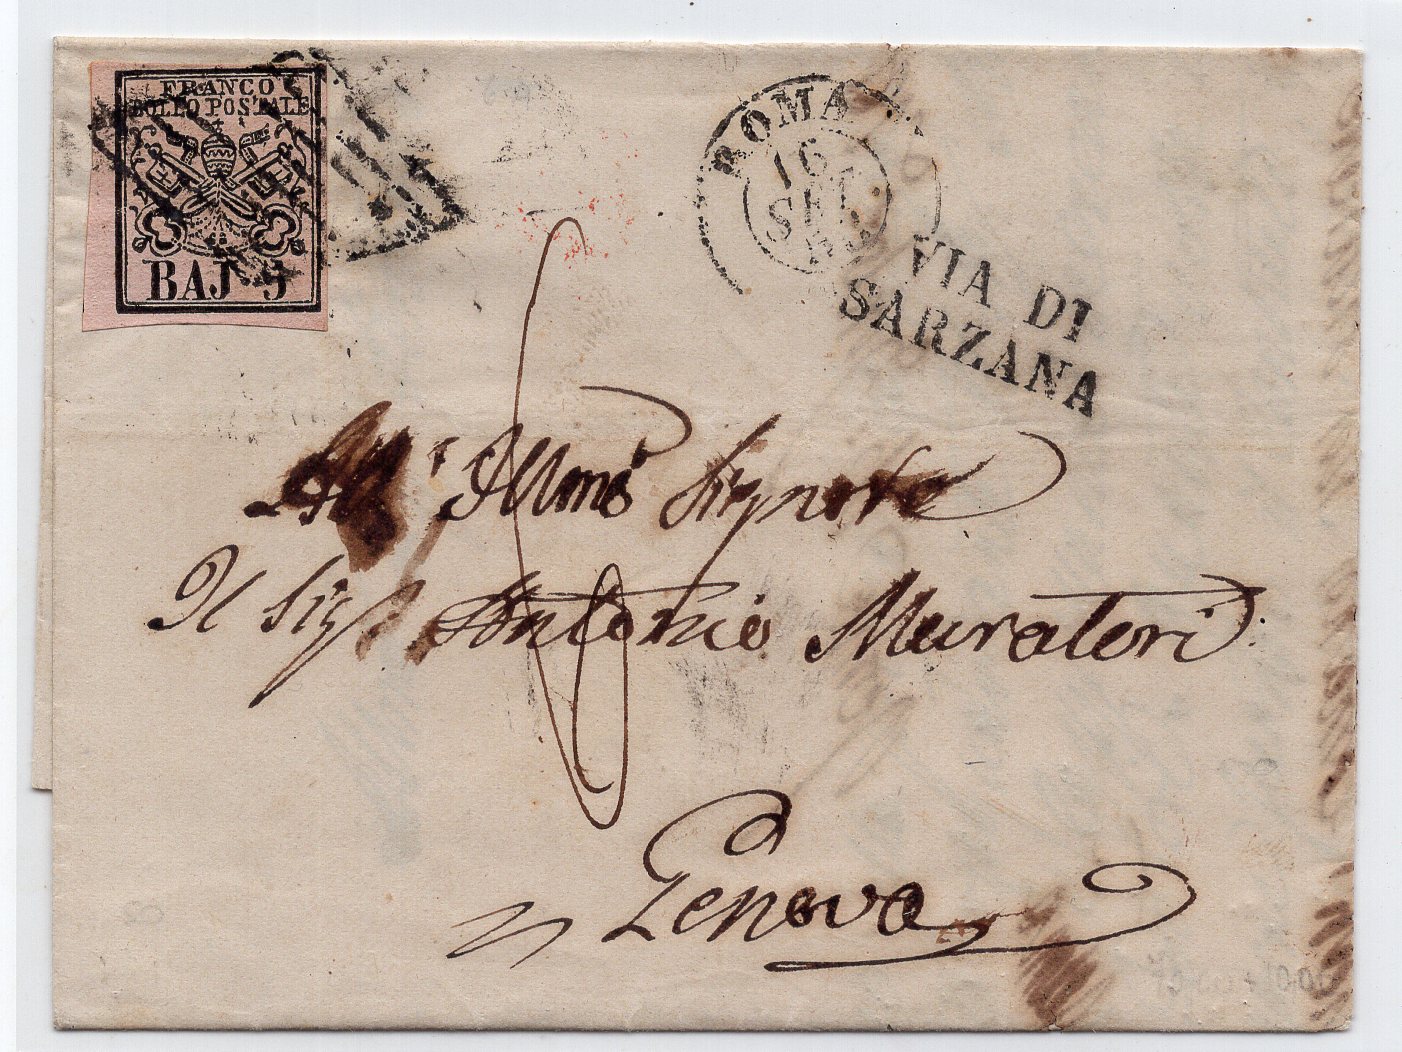 FRANCO
BOLLO POSTALE
BAJ 5
ROMA
16
SET
VIA DI
SARZANA
All' Illmo Signore
Il Sigr Antonio Muratori
Genova